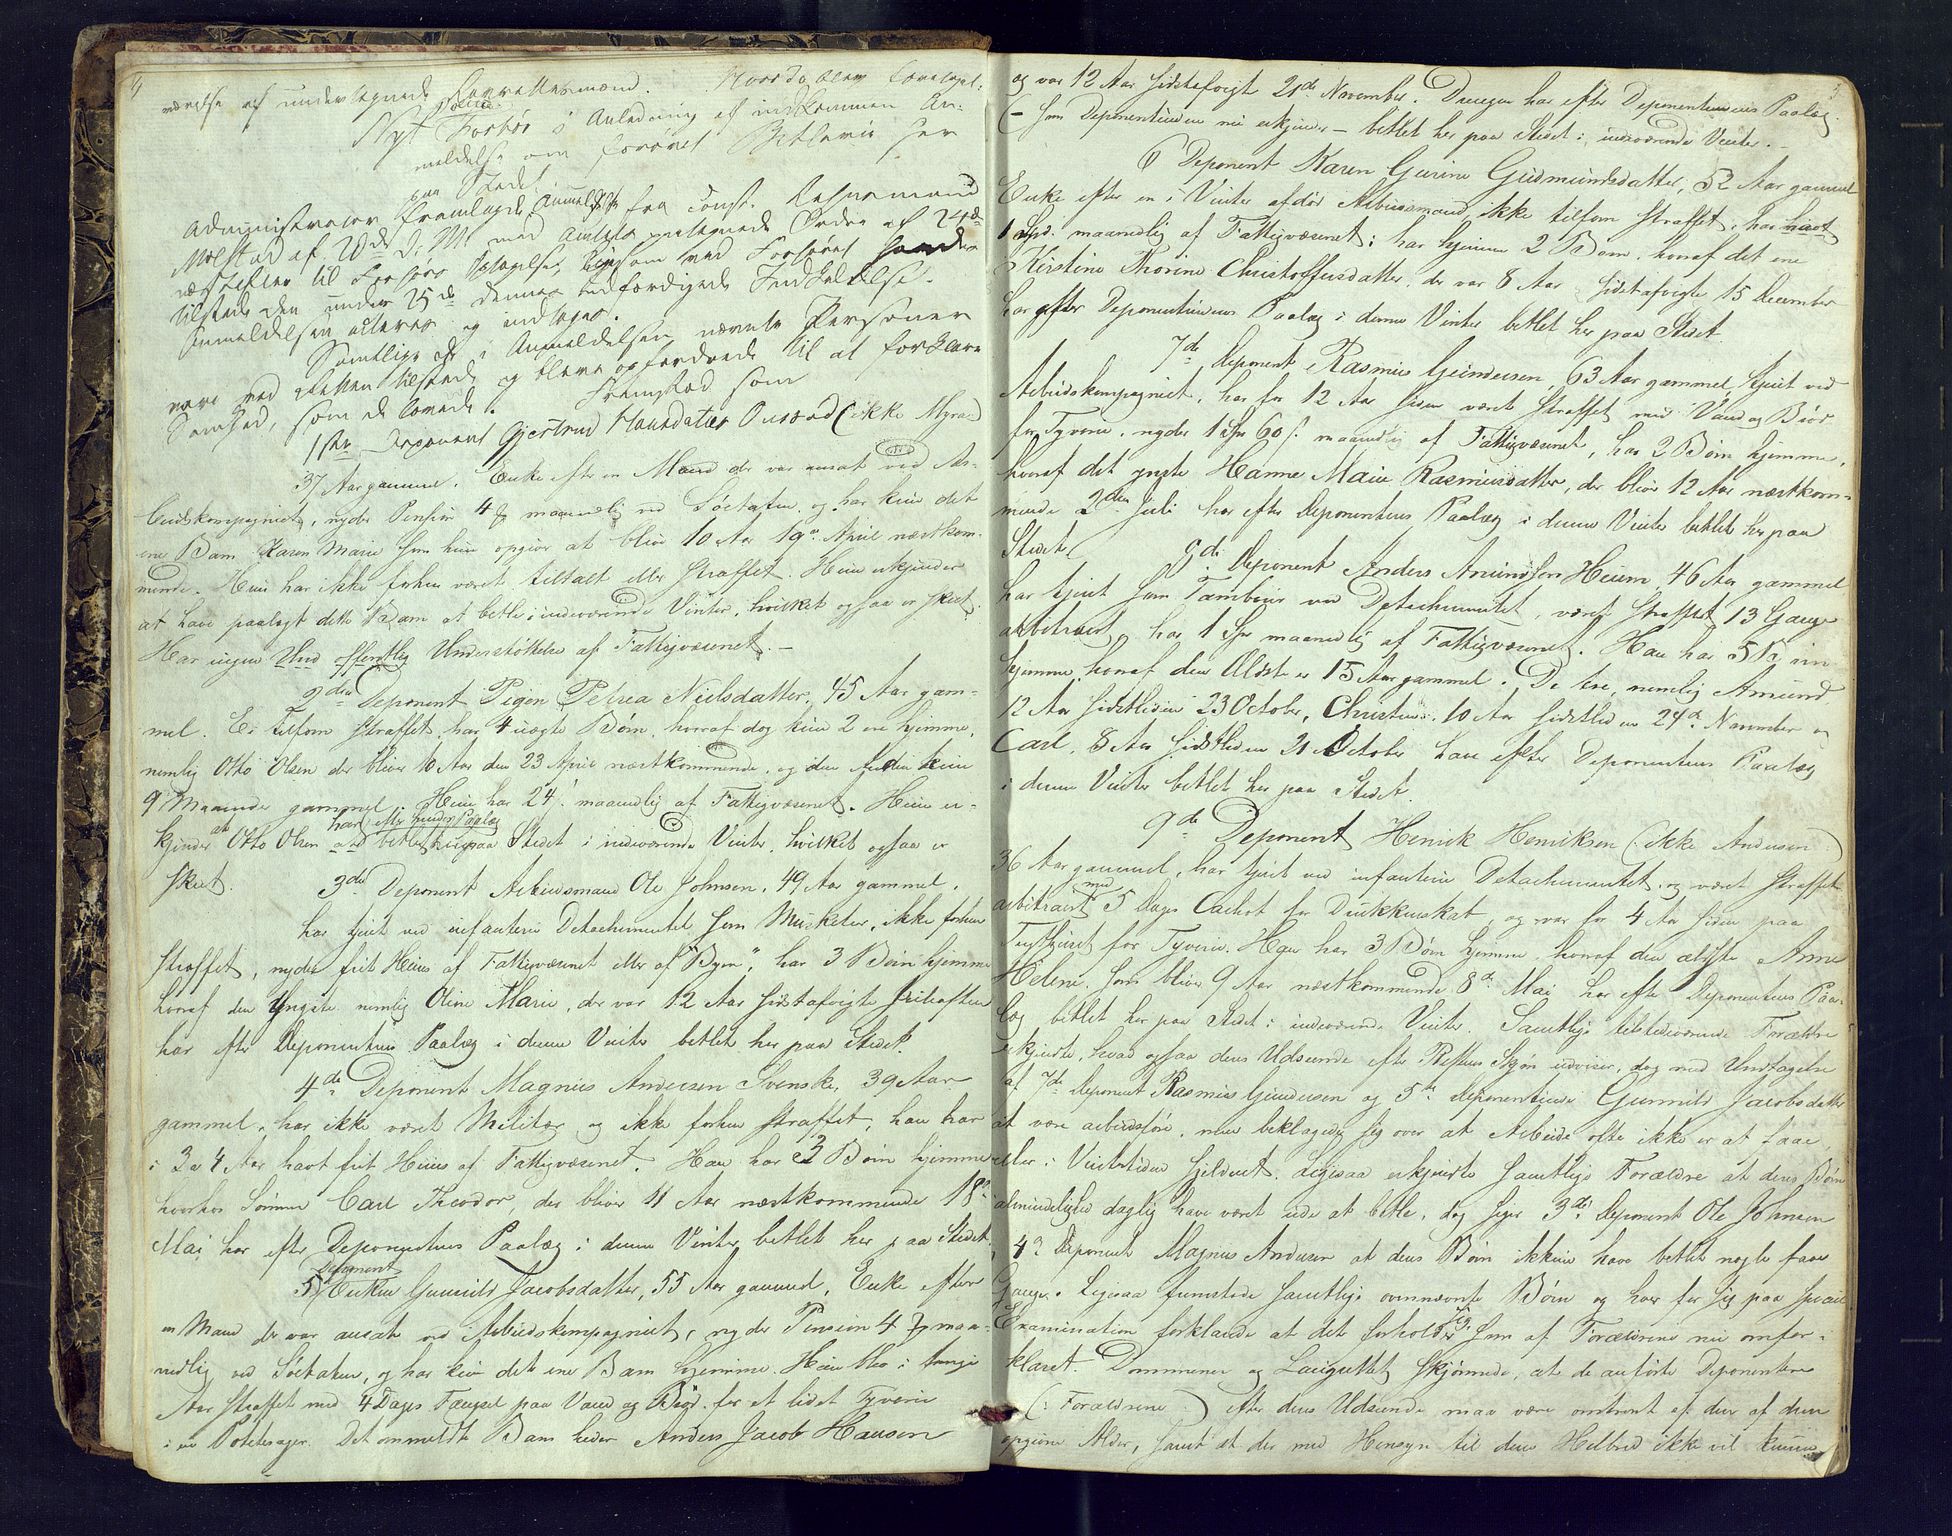 4
nævnelse af undertegnede Laurettesmænd. Hvorda blev foretaget
Nyt Forhør i Anledning af indkommen An-
meldelse om forøvet Betlerie her
paa Stedet.
Administrator fremlagde Anmeldelse fra const. Lehnsmand
Molstad af 20de d. M. med Amtets paategnede Ordre af 24de
næstefter til Forhørs Optagelse, ligesom ved Forhøret
tilstede den under 25de dennes udfærdigede Indkaldelse.
Anmeldelsen acteres og indtages.
Samtlige de i Anmeldelsen nævnte Personer
vare ved Retten tilstede og bleve opfordrede til at forklare
Sandhed, som de lovede. Fremstod som
1ste Deponent Gjertrud Hansdatter (ikke Myra)
37 Aar gammel. Enke efter en Mand der var ansat ved Ar-
beidskompagniet, nyder Pension 4 maanedlig ved Søetaten og har kun det
ene Barn Karen Marie som hun opgiver at blive 10 Aar 19de April næstkom-
mende. Hun har ikke forhen været tiltalt eller straffet. Hun erkjender
at have paalagt dette Barn at betle i indeværende Vinter, hvilket ogsaa er skeet.
Har ingen offentlig Understøttelse af Fattigvæsenet. –
2den Deponent Pigen Petrea Nielsdatter, 45 Aar gam-
mel. Er tilforn straffet, har 4 uægte Børn, hvoraf dog kun 2 ere hjemme,
nemlig Otto Olsen der bliver 10 Aar den 23 April næstkommende, og den Anden kun
9 Maaneder gammel. Hun har 24 maanedlig af Fattigvæsenet. Hun er-
kjender at Otto Olsen har efter hendes Paalæg betlet her paa Stedet i indeværende Vinter, hvilket ogsaa er
skeet. 3die Deponent Arbeidsmand Ole Johnsen, 49 Aar gammel,
har tjent ved infanterie Detachementet som Musketer, ikke forhen
straffet, nyder frit Huus af Fattigvæsenet eller af "Byen", har 3 Børn hjemme
hvoraf den Yngste nemlig Oline Marie, der var 12 Aar sidstafvigte Juleaften
har efter Deponentens Paalæg i denne Vinter betlet her paa Stedet.
4de Deponent Magnus Andersen Svenske, 39 Aar
gammel, har ikke været Militær og ikke forhen straffet, han har
i 3 a 4 Aar havt frit Huus af Fattigvæsenet. Han har 3 Børn hjemme
hvorhos Sønnen Carl Theodor, der bliver 11 Aar næstkommende 18de
Mai, har efter Deponentens Paalæg i denne Vinter betlet her paa Stedet.
5 Deponent Enken Gunnild Jacobsdatter, 55 Aar gammel, Enke efter
en Mand der var ansat ved Arbeidskompagniet, nyder Pension 4 maa-
nedlig ved Søetaten, og har kun det ene Barn hjemme. Hun blev i
Aar straffet med 4 Dages Fængsel paa Vand og Brød for et lidet Tyverie
i en Potetesager. Det ommeldte Barn heder Anders Jacob Hansen
5
og var 12 Aar sidstafvigte 21de November. Drengen har efter Deponentindens Paalæg
(– som Deponentinden nu erkjender – betlet her paa Stedet i indeværende Vinter. –
6 Deponent Karen Gurine Gudmundsdatter, 52 Aar gammel
Enke efter en i Vinter afdød Arbeidsmand, ikke tilforn straffet, har havt
1 Spd. maanedlig af Fattigvæsenet; har hjemme 2 Børn, hvoraf det ene
Kirstine Thorine Christoffersdatter, der var 8 Aar sidstafvigte 15 December
har efter Deponentindens Paalæg i denne Vinter betlet her paa Stedet.
7de Deponent Rasmus Gundersen, 63 Aar gammel, tjent ved
Arbeidskompagniet, har for 12 Aar siden været straffet med Vand og Brød
for Tyverie, nyder 1 Spd 60 s. maanedlig af Fattigvæsenet, har 2 Børn hjemme,
hvoraf det yngste Hanne Marie Rasmusdatter, der bliver 12 Aar næstkom-
mende 2den Juli har efter Deponentens Paalæg i denne Vinter betlet her paa
Stedet.
8de Deponent Anders Amundsen Heium, 46 Aar gammel
har tjent som Tambour ved Detachementet, været straffet 13 Gange
arbitrært, har 1 Spd maanedlig af Fattigvæsenet. Han har 5 Børn
hjemme, hvoraf den Ældste er 15 Aar gammel. De tre, nemlig Amund
12 Aar sidstleden 23 October, Christine, 10 Aar sidstleden 24de November og
Carl, 8 Aar sidstleden 21 October have efter Deponentens Paalæg
i denne Vinter betlet her paa Stedet.
9de Deponent Henrik Henriksen (ikke Andersen)
36 Aar gammel, har tjent ved infanterie Detachementet og været straffet
arbitrært med 5 Dages Cachot for Drukkenskab, og var for 4 Aar siden paa
Tugthuset for Tyverie. Han har 3 Børn hjemme, hvoraf den ældste Anne
Helene, som bliver 9 Aar næstkommende 8de Mai har efter Deponentens Paa-
læg betlet her paa Stedet i indeværende Vinter. Samtlige tilstedeværende Forældre
erkjendte, hvad ogsaa deres Udseende efter Rettens Skjøn udviser, dog med Undtagelse
af 7de Deponent Rasmus Gundersen og 5te Deponentinde Gunnild Jacobsdatter
at være arbeidsføre, men beklagede sig over at Arbeide ofte ikke er at faae
eller i Vintertiden sjeldent. Ligesaa erkjendte samtlige Forældre at deres Børn
almindeligvis daglig have været ude at betle, dog siger 3die Deponent Ole Johnsen
4de Deponent Magnus Andersen at deres Børn ikkun have betlet nogle faae
Gange. Ligesaa fremstode samtlige ovennævnte Børn og hver for sig paa speciel
Examination forklarede at det forholder sig som af Forældrene nu omfor-
klaret. Dommeren og Laugrettet skjønnede, at de anførte Deponentere
(: Forældrene :) efter deres Udseende maa være omtrent af den af dem
opgivne Alder, samt at der med Hensyn til deres Helbred ikke vil kunne